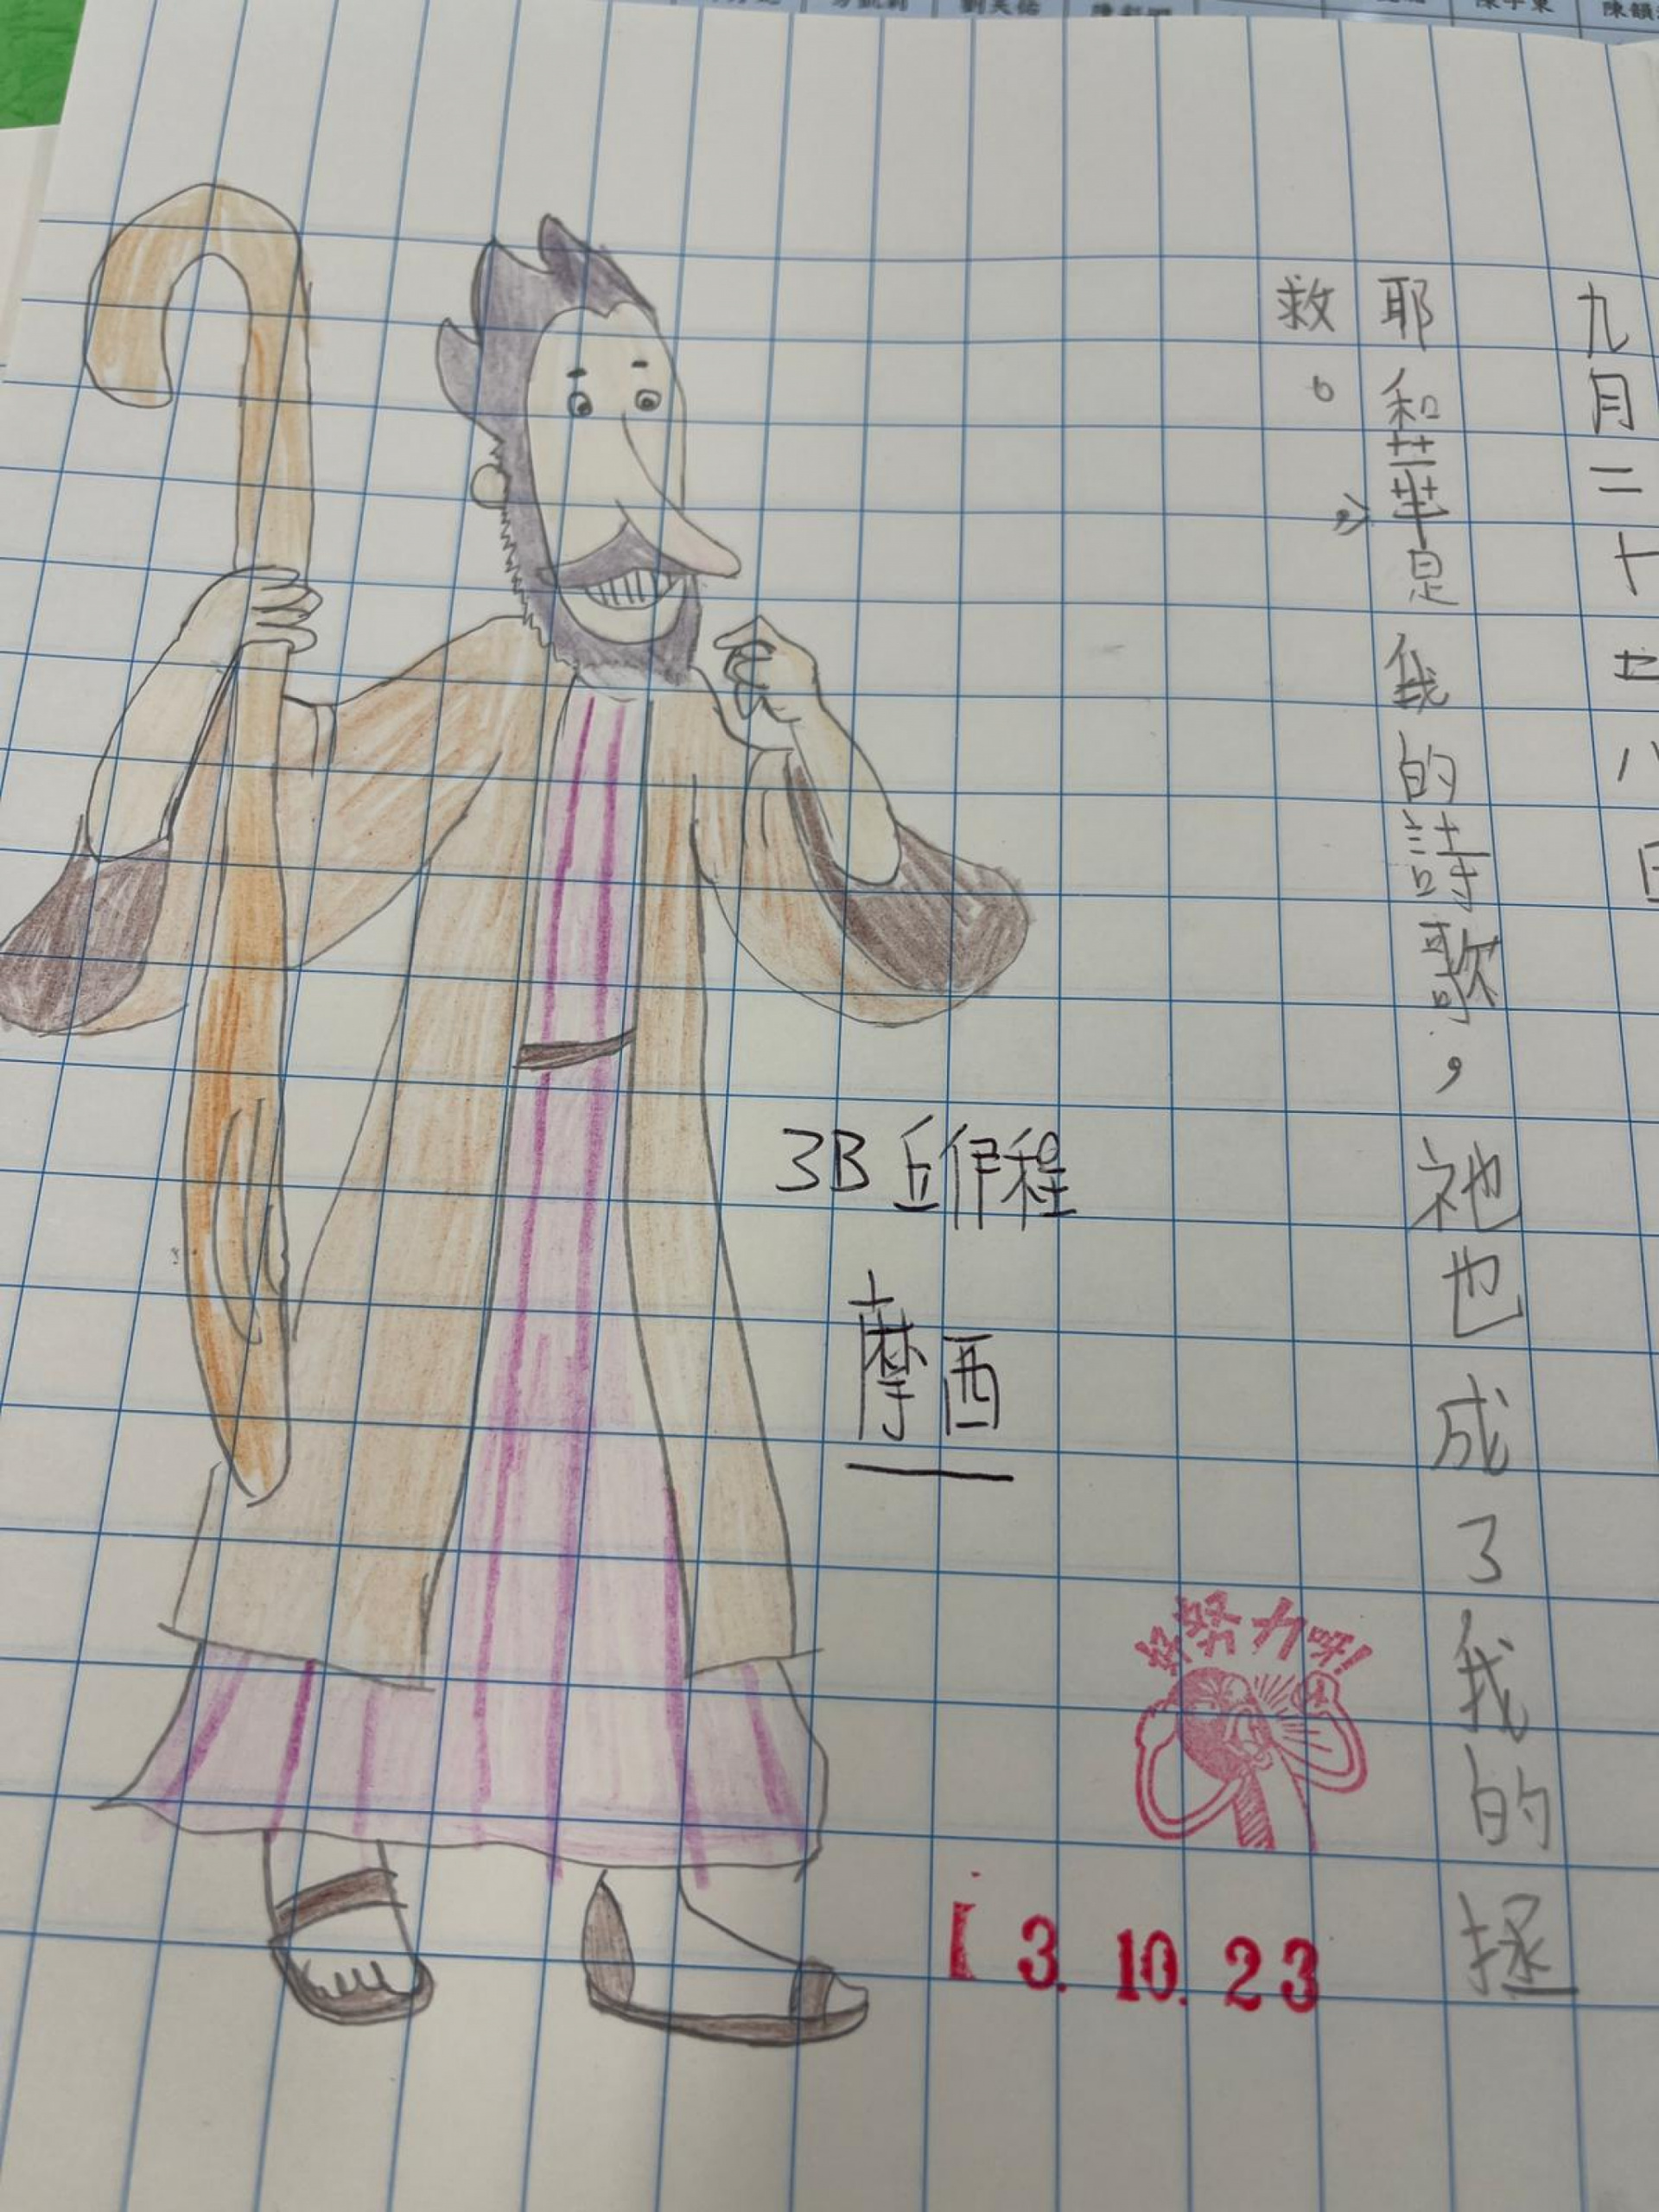 九月二十七八日
耶和華是我的詩歌，祂也成了我的拯
救。
3B 丘伊程
摩西
好努力呀!
13.10.23